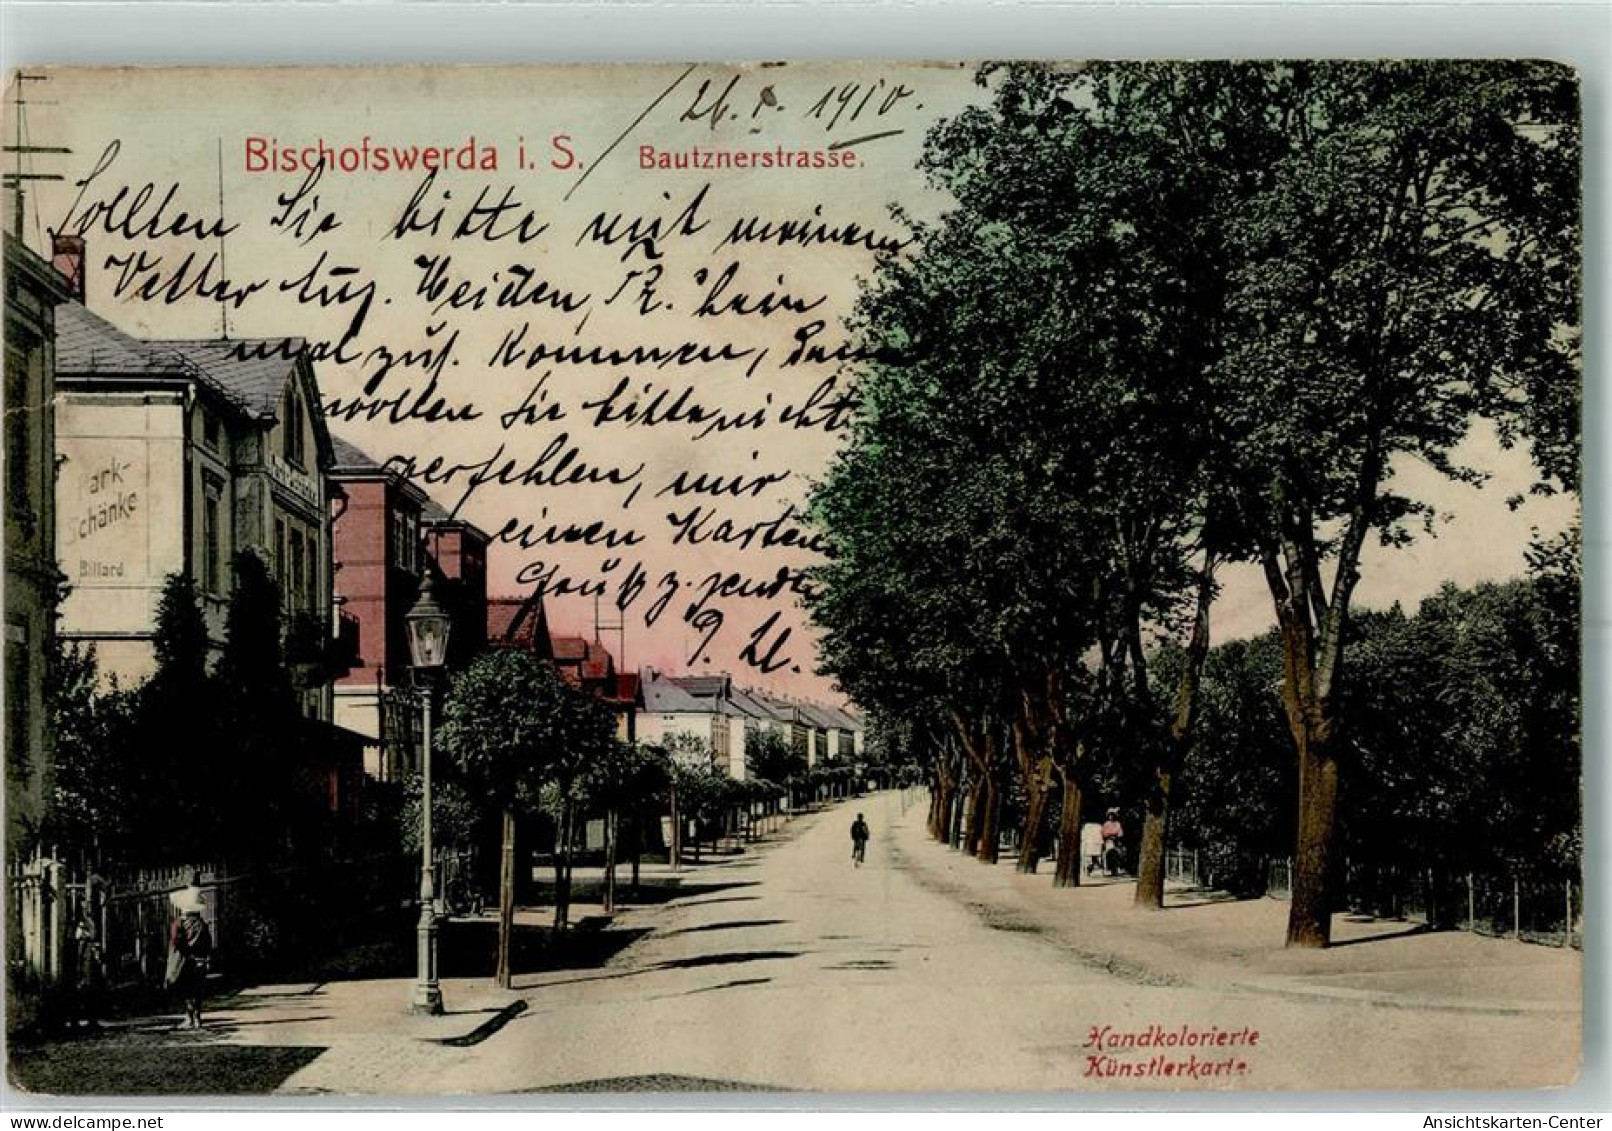 26. I. 1910.
Bischofswerda i. S. Bautznerstrasse.
Sollten Sie bitte mit meinem
Vetter Aug. Weiden, Kr. hein
mal zus. Kommen, dann
wollen Sie bitte nicht
verfehlen, mir
einen Karten
Gruß z. senden
Park-
Schänke
Billard.
Handkolorierte
Künstlerkarte.
Ansichtskarten-Center